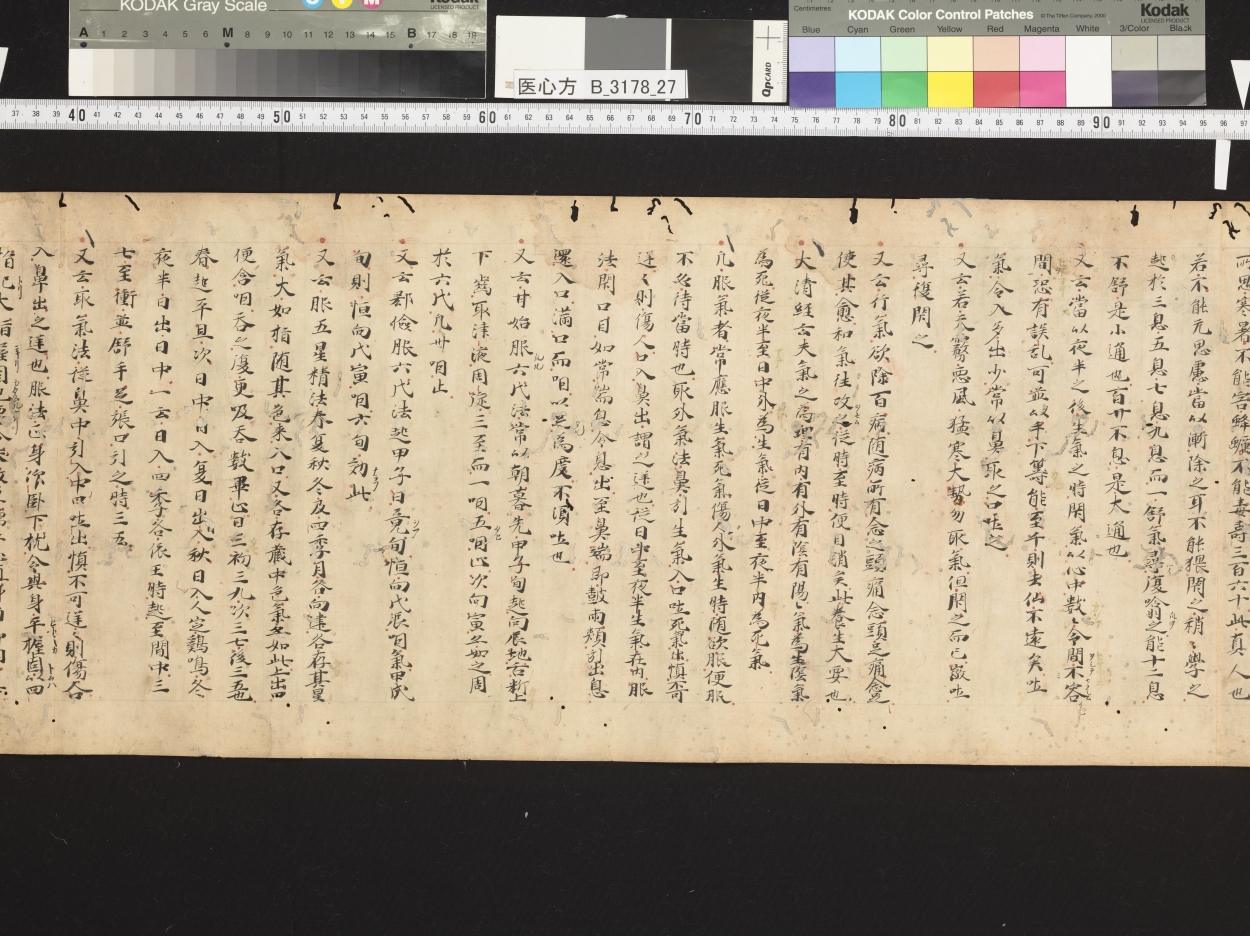 KODAK Gray Scale
Kodak
LICENSED PRODUCT
A 1 2 3 4 5 6 M 8 9 10 11 12 13 14 15 B 17 18 19
医心方 B_3178_27
QpCARD
KODAK Color Control Patches
© The Tiffen Company, 2000
Kodak
LICENSED PRODUCT
Centimetres
Blue Cyan Green Yellow Red Magenta White 3/Color Black
40 50 60 70 80 90
若不能无思慮當以漸除之耳不能猥閇之稍〻學之
起於三息五息七息九息而一舒氣尋復噏之能十二息
不舒是小通也百廿不息是大通也
又云當以夜半之後生氣之時閇氣以心中數〻令間不容
間恐有誤乱可並以手下籌能至千則去仙不遠矣吐
氣令入多出少常以鼻取之口吐之
又云若天霧惡風猛寒大熱勿取氣但閇之而已微吐
尋復閇之
又云行氣欲除百病随病所有念之頭痛念頭足痛念足
使其愈和氣往攻之從時至時便自消矣此養生大要也
大清経云夫氣之為理有内有外有陰有陽〻氣為生陰氣
為死從夜半至日中外為生氣從日中至夜半内為死氣
凡服氣者常應服生氣死氣傷人外氣生時随欲服便服
不必待當時也取外氣法鼻引生氣入口吐死氣出慎不可
逆〻則傷人口入鼻出謂之逆也從日中至夜半生氣在内服
法閇口目如常喘息令息出至鼻端即鼓兩頬引出息
還入口満口而咽以足為度不須吐也
又云廿始服六代法常以朝暮先甲子旬起向辰地舌料上
下齒取津液周旋三至而一咽五咽止次向寅如之周
於六代凡卅咽止
又云郄儉服六代法起甲子日竟旬恒向代辰咽氣甲戌
旬則恒向代寅咽六旬効此
又云服五星精法春夏秋冬及四季月各向建各存其星
氣大如指随其色来入口又各存蔵中色氣如此上出
便含咽吞之復更吸吞數畢止日三初三九次三七後三五
春起平旦次日中日入夏日出入秋日入人定鷄鳴冬
夜半日出日中一云日入四季各依王時起至間中三
七至衝並舒手足張口引之時三五
又云取氣法從鼻中引入中口吐出慎不可逆〻則傷人口
入鼻出之逆也服法正身洽卧下枕令與身平握固四